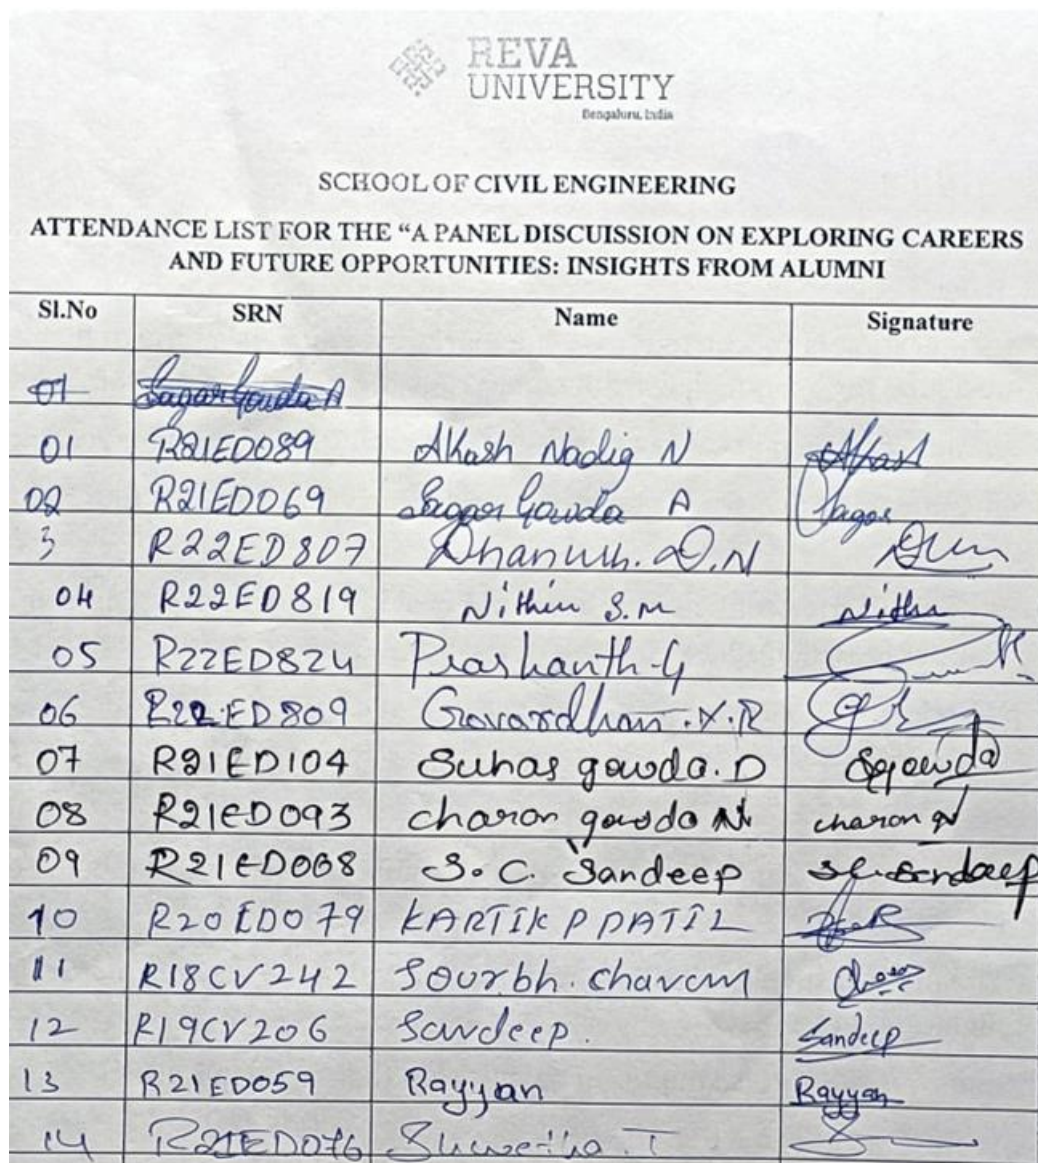 REVA
UNIVERSITY
Bengaluru, India
SCHOOL OF CIVIL ENGINEERING
ATTENDANCE LIST FOR THE “A PANEL DISCUISSION ON EXPLORING CAREERS
AND FUTURE OPPORTUNITIES: INSIGHTS FROM ALUMNI
Sl.No SRN Name Signature
01 Sagar Gowda A
01 R21ED089 Akash Nadig N Akash
02 R21ED069 Sagar Gowda A Sagar
3 R22ED807 Dhanush. D.N
04 R22ED819 Nithin S.M Nithin
05 R22ED824 Prashanth-G
06 R22ED809 Gavardhan.X.R
07 R21ED104 Suhas gowda. D Sgowda
08 R21ED093 charan gowda N charan gN
09 R21ED008 S. C. Sandeep S.C. Sandeep
10 R20ED079 KARTIK P PATIL
11 R18CV242 Sourbh. chavan
12 R19CV206 Sandeep. Sandeep
13 R21ED059 Rayyan Rayyan
14 R21ED076 Shwetha. T